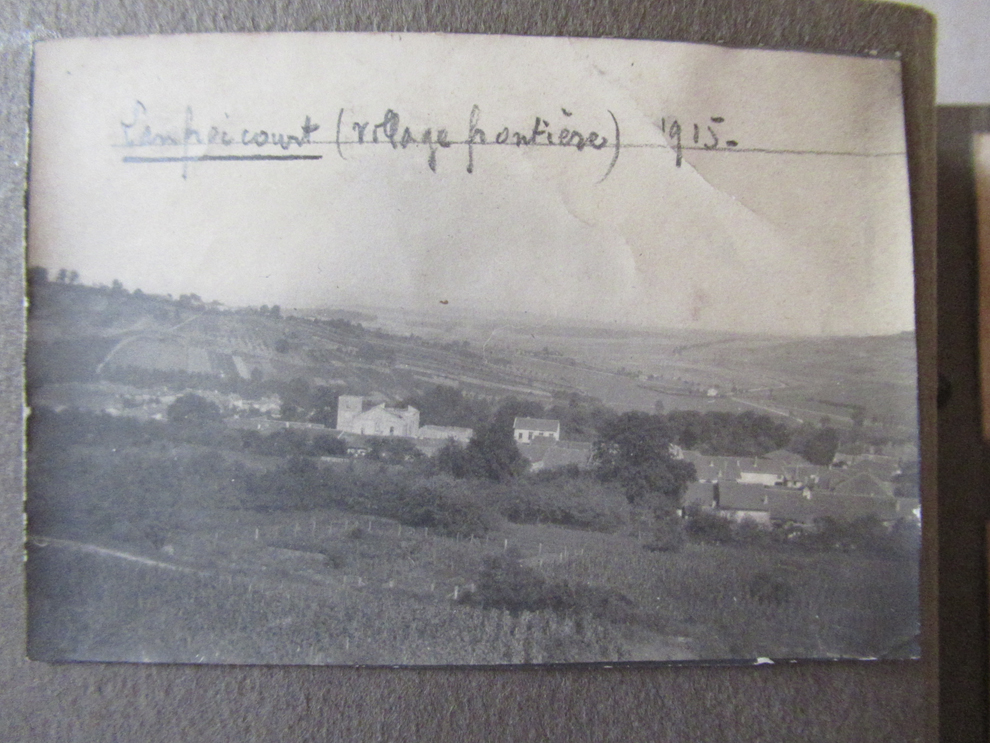 Lanfroicourt (village frontière) 1915.